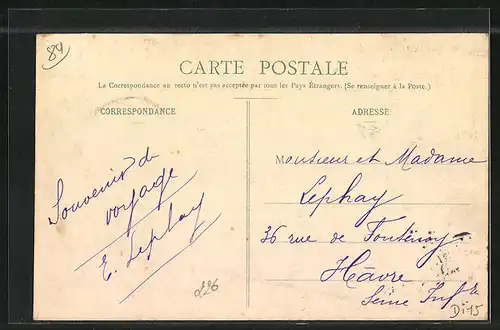 84
CARTE POSTALE
La Correspondance au recto n'est pas acceptée par tous les Pays Étrangers. (Se renseigner à la Poste.)
CORRESPONDANCE
ADRESSE
Souvenir de
voyage
E. Lephay
Monsieur et Madame
Lephay
36 rue de Fontenoy
Hâvre
Seine Infre
226
D:15